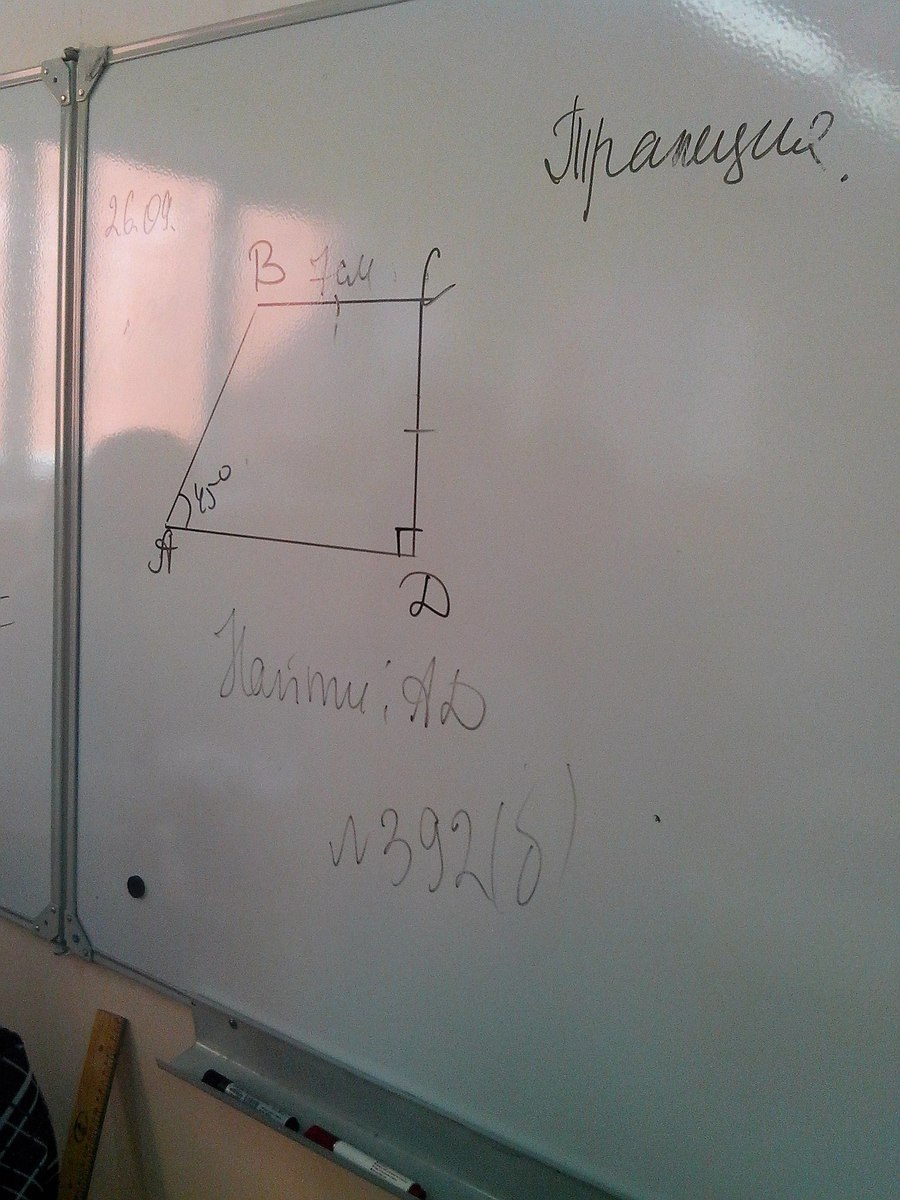 Трапеция.
26.09.
B 7см C
45°
A
D
Найти: AD
№392(б)